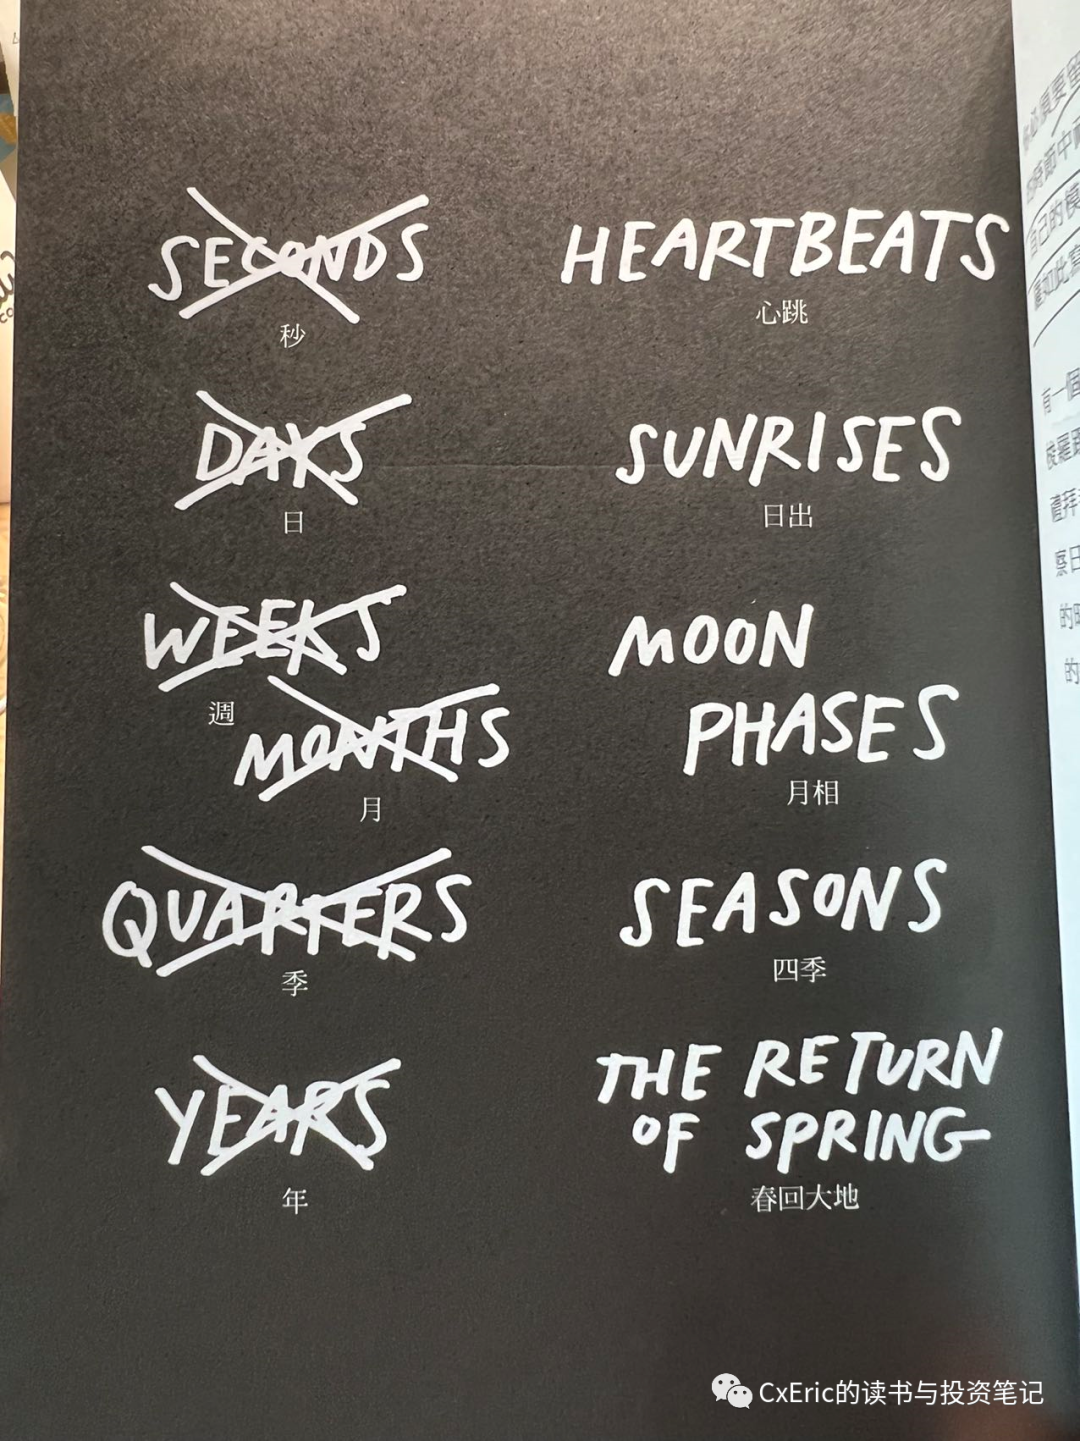 SECONDS HEARTBEATS
秒 心跳
DAYS SUNRISES
日 日出
WEEKS MOON
週 MONTHS PHASES
月 月相
QUARTERS SEASONS
季 四季
YEARS THE RETURN
OF SPRING
年 春回大地
有一個
禮拜
的
的
CxEric的读书与投资笔记